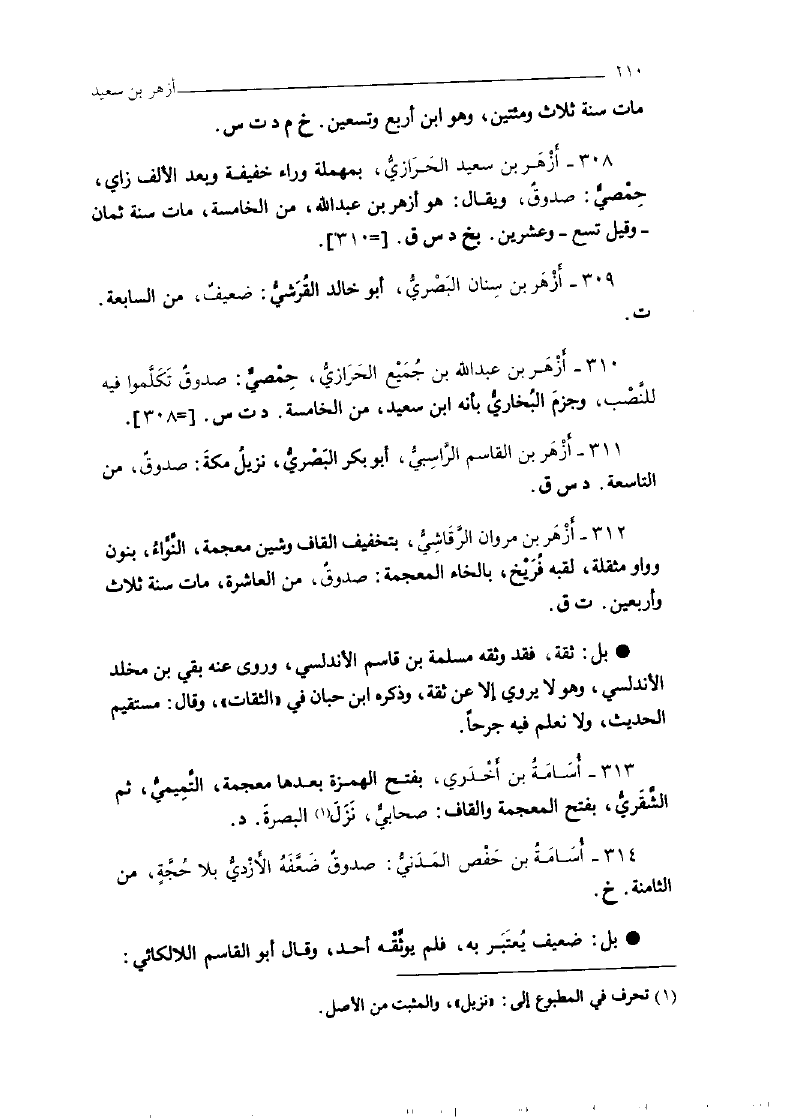 ٢١٠ أزهر بن سعيد
مات سنة ثلاث ومئتين، وهو ابن أربع وتسعين. خ م د ت س.
٣٠٨ ـ أَزْهَـر بن سعيد الحَـرَازيُّ، بمهملة وراء خفيفـة وبعد الألف زاي،
حِمْصيٌّ: صدوقٌ، ويقـال: هو أزهر بن عبدالله، من الخامسة، مات سنة ثمان
ـ وقيل تسع ـ وعشرين. بخ د س ق. [=٣١٠].
٣٠٩ ـ أَزْهَر بن سِنان البَصْريُّ، أبو خالد القُرَشيُّ: ضعيفٌ، من السابعة.
ت.
٣١٠ ـ أَزْهَـر بن عبدالله بن جُمَيْع الحَرَازيُّ، حِمْصيٌّ: صدوقٌ تَكَلَّموا فيه
للنَّصْب، وجزمَ البُخاريُّ بأنه ابن سعيد، من الخامسة. د ت س. [=٣٠٨].
٣١١ ـ أَزْهَر بن القاسم الرَّاسِبيُّ، أبو بكر البَصْريُّ، نزيلُ مكةَ: صدوقٌ، من
التاسعة. د س ق.
٣١٢ ـ أَزْهر بن مروان الرَّقاشِيُّ، بتخفيف القاف وشين معجمة، النَّوَّاءُ، بنون
وواو مثقلة، لقبه فُرَيْخ، بالخاء المعجمة: صدوقٌ، من العاشرة، مات سنة ثلاث
وأربعين. ت ق.
● بل: ثقة، فقد وثقه مسلمة بن قاسم الأندلسي، وروى عنه بقي بن مخلد
الأندلسي، وهو لا يروي إلا عن ثقة، وذكره ابن حبان في «الثقات»، وقال: مستقيم
الحديث، ولا نعلم فيه جرحاً.
٣١٣ ـ أُسَامَـةُ بن أَخْـدَري، بفتـح الهمـزة بعـدها معجمة، التَّمِيميُّ، ثم
الشَّقَريُّ، بفتح المعجمة والقاف: صحابيٌّ، نَزَلَ(١) البصرةَ. د.
٣١٤ ـ أُسَـامَـةُ بن حَفْص المَـدَنيُّ: صدوقٌ ضَعَّفَهُ الأَزْديُّ بلا حُجَّةٍ، من
الثامنة. خ.
● بل: ضعيف يُعتَبَـر به، فلم يوثِّقْـه أحـد، وقـال أبو القاسم اللالكائي:
(١) تحرف في المطبوع إلى: «نزيل»، والمثبت من الأصل.